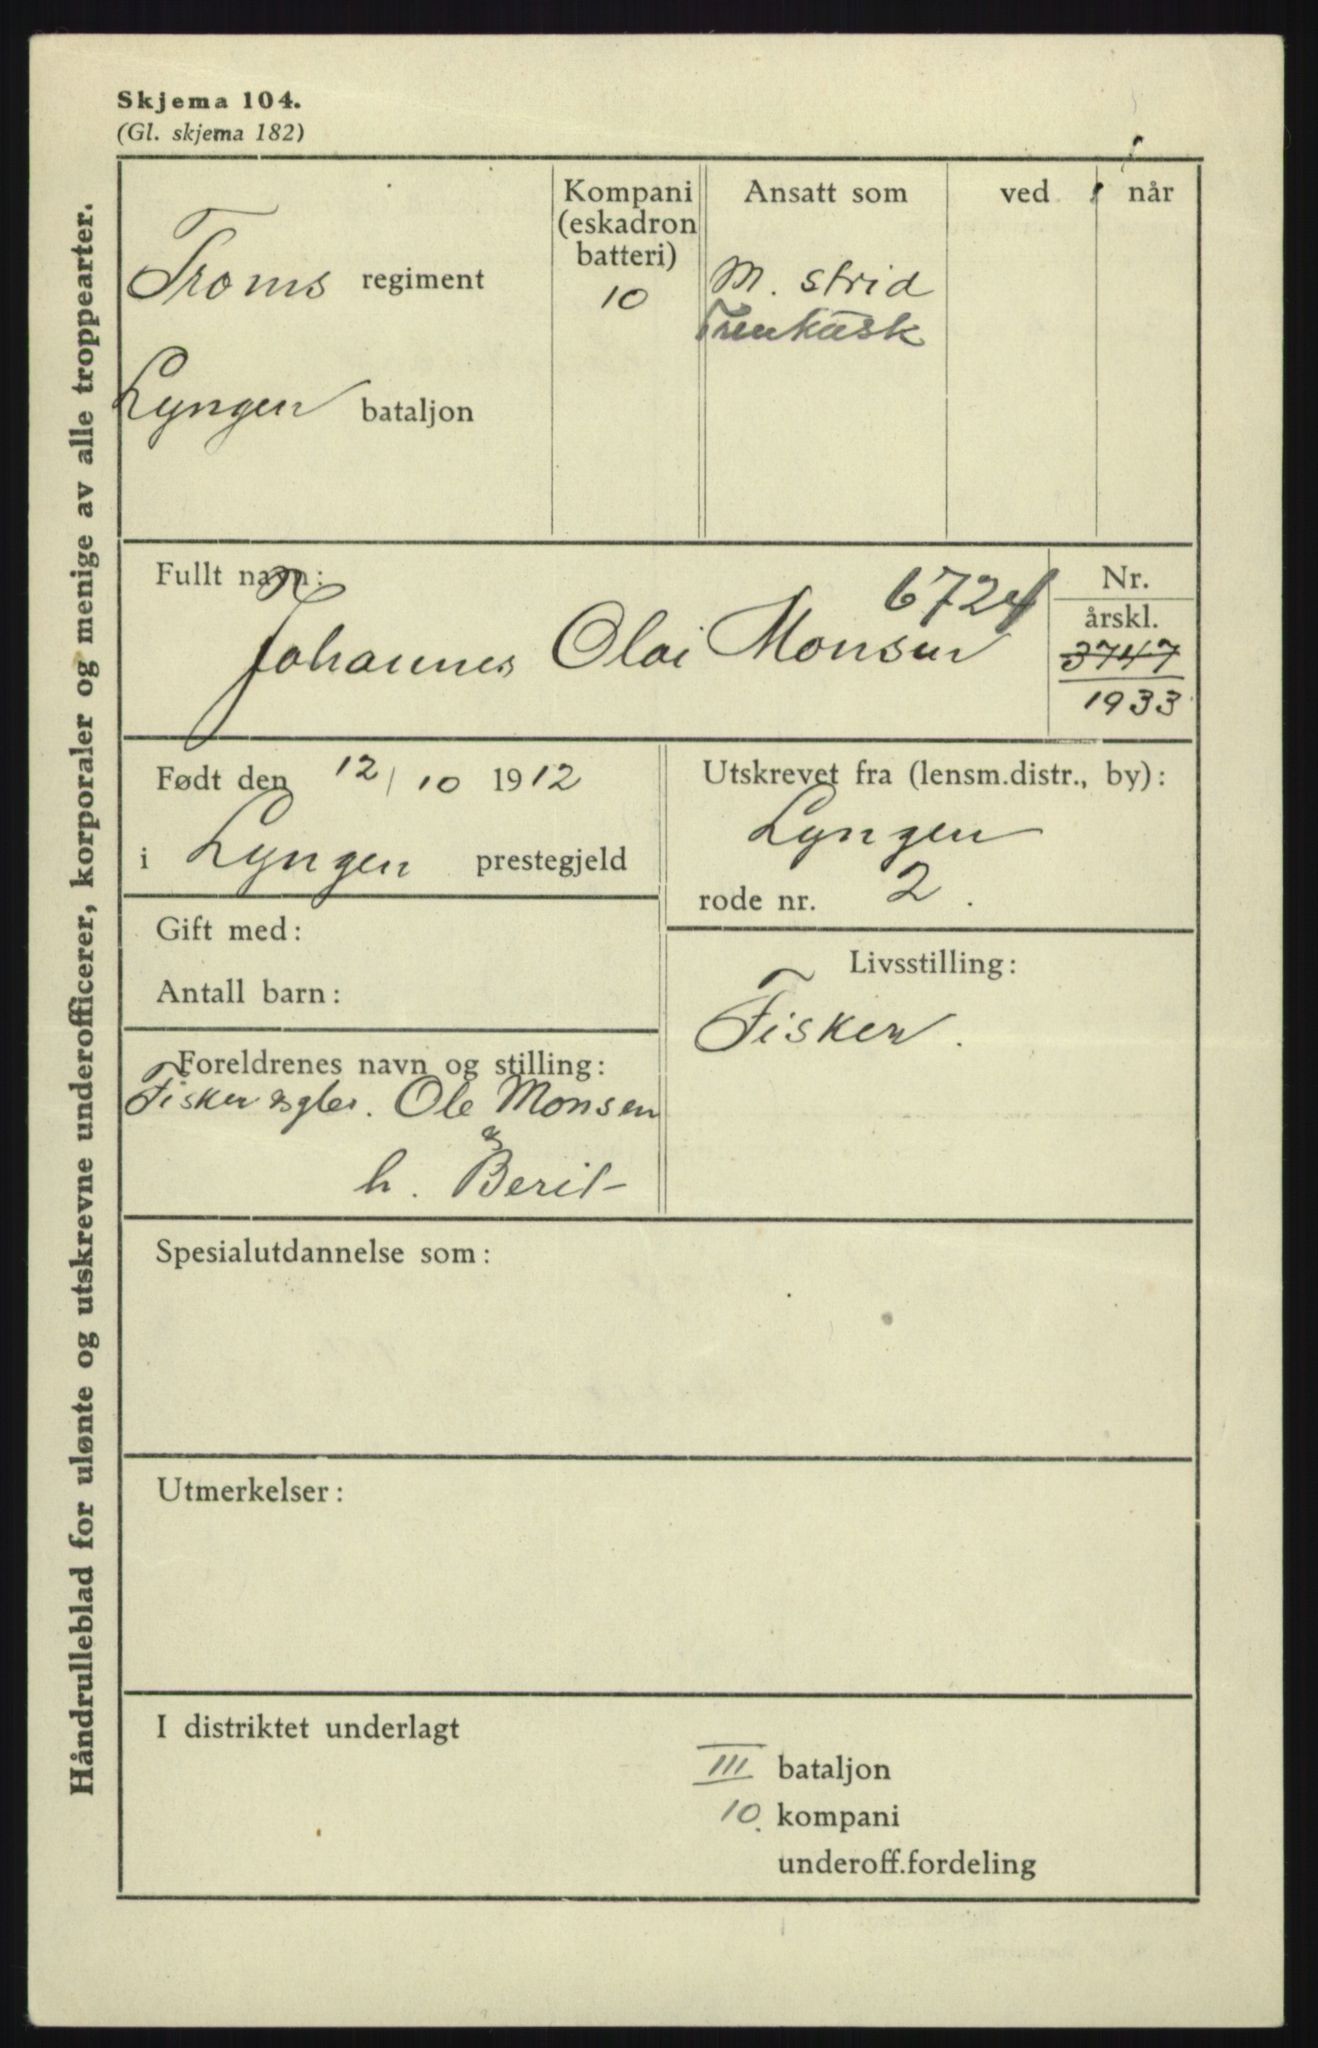 Skjema 104.
(Gl. skjema 182)
Håndrulleblad for ulønte og utskrevne underofficerer, korporaler og menige av alle troppearter.
Troms regiment
Lyngen bataljon
Kompani
(eskadron
batteri)
10
Ansatt som
M. strid
Trenkusk
ved
når
Fullt navn:
6724
Johannes Olai Monsen
Nr.
årskl.
3747
1933
Født den 12/10 1912
i Lyngen prestegjeld
Utskrevet fra (lensm.distr., by):
Lyngen
rode nr. 2.
Gift med:
Antall barn:
Livsstilling:
Fisker.
Foreldrenes navn og stilling:
Fisker Ole Monsen
h. Berit
Spesialutdannelse som:
Utmerkelser:
I distriktet underlagt
III bataljon
10. kompani
underoff.fordeling